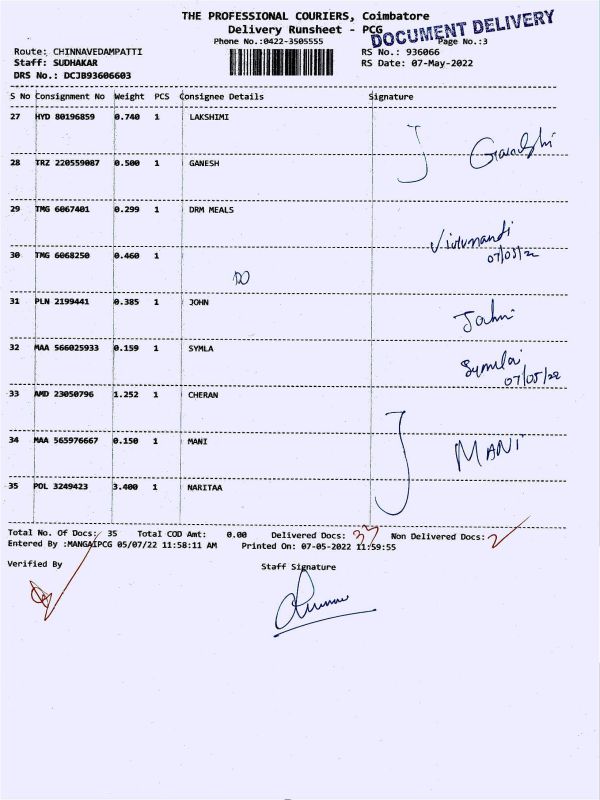 THE PROFESSIONAL COURIERS, Coimbatore
Delivery Runsheet - PCG
DOCUMENT DELIVERY
Phone No.:0422-3505555
Page No.:3
Route: CHINNAVEDAMPATTI
RS No.: 936066
Staff: SUDHAKAR
RS Date: 07-May-2022
DRS No.: DCJB93606603
S No Consignment No Weight PCS Consignee Details Signature
27 HYD 80196859 0.740 1 LAKSHIMI
28 TRZ 220559087 0.500 1 GANESH
29 TMG 6067401 0.299 1 DRM MEALS
07/05/22
30 TMG 6068250 0.460 1
DO
31 PLN 2199441 0.385 1 JOHN
John
32 MAA 566025933 0.159 1 SYMLA
Symlai
07/05/22
33 AMD 23050796 1.252 1 CHERAN
34 MAA 565976667 0.150 1 MANI
MANI
35 POL 3249423 3.400 1 NARITAA
Total No. Of Docs: 35 Total COD Amt: 0.00 Delivered Docs: 33 Non Delivered Docs: 2
Entered By :MANGAIPCG 05/07/22 11:58:11 AM Printed On: 07-05-2022 11:59:55
Verified By
Staff Signature